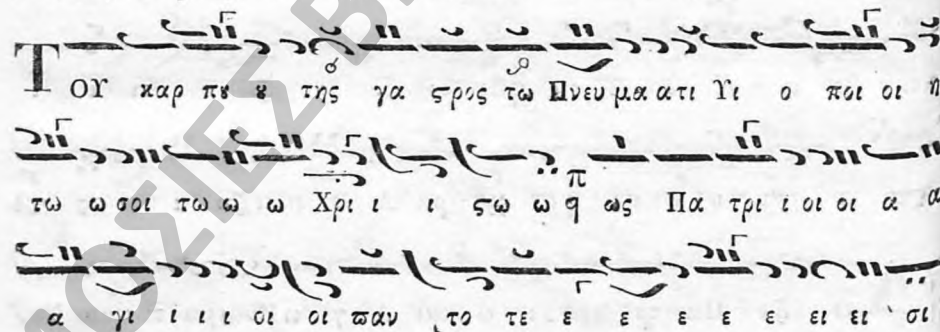 ΤΟΥ καρ πȣ ȣ της γα ϛρος τω Πνευ μα ατι Υι ο ποι οι η
τω ω σοι πω ω ω Χρι ι ι ϛω ω ως Πα τρι ι οι οι α α
α γι ι ι ι οι οι παν το τε ε ε ε ε ε ει ει σι